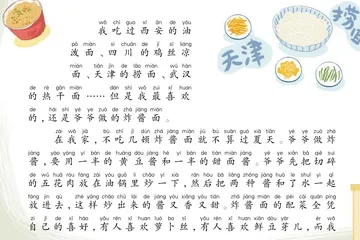 wǒ chī guo xī ān de yóu
我吃过西安的油
pō miàn sì chuān de jī sī liáng
泼面、四川的鸡丝凉
miàn tiān jīn de lāo miàn wǔ hàn
面、天津的捞面、武汉
de rè gān miàn dàn shì wǒ zuì xǐ huan
的热干面……但是我最喜欢
de hái shì yé ye zuò de zhá jiàng miàn
的，还是爷爷做的炸酱面。
zài wǒ jiā bù chī jǐ dùn zhá jiàng miàn jiù bú suàn guò xià tiān yé ye zuò zhá
在我家，不吃几顿炸酱面就不算过夏天。爷爷做炸
jiàng yào yòng yí bàn de huáng dòu jiàng hé yí bàn de tián miàn jiàng yé ye xiān bǎ qiē suì
酱，要用一半的黄豆酱和一半的甜面酱。爷爷先把切碎
de wǔ huā ròu fàng zài yóu guō lǐ chǎo yí xià rán hòu bǎ liǎng zhǒng jiàng huò le shuǐ yì qǐ
的五花肉放在油锅里炒一下，然后把两种酱和了水一起
fàng jìn qù zhè yàng chǎo chū lái de jiàng yòu xiāng yòu tián zhá jiàng miàn de pèi cài quán píng
放进去，这样炒出来的酱又香又甜。炸酱面的配菜全凭
zì jǐ de xǐ hào yǒu rén xǐ huan luó bo sī yǒu rén xǐ huan xiān dòu yá ér ér wǒ
自己的喜好，有人喜欢萝卜丝，有人喜欢鲜豆芽儿，而我
天津
捞面